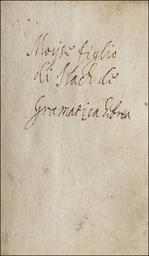 Moysè figlio
di Isach di
Gramatica Ebrea